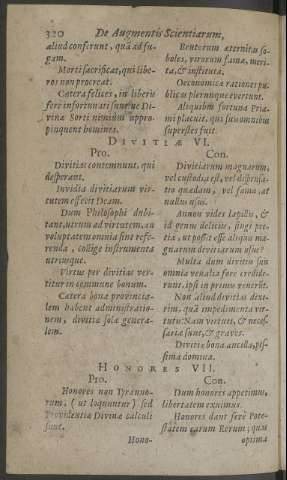 320 De Augmentis Scientiarum,
aliud conferunt, quā ad fu-
gam.
Morti sacrificat, qui libe-
ros non procreat.
Cætera felices, in liberis
ferè infortunati sunt, ne Di-
vinæ Sorti nimiùm appro-
pinquent homines.
Brutorum æternitas so-
boles, virorum fama, meri-
ta, & instituta.
Oeconomicæ rationes pu-
blicas plerunque evertunt.
Aliquibus fortuna Pria-
mi placuit, qui suis omnibus
superstes fuit.
DIVITIÆ VI.
Pro.
Divitias contemnunt, qui
desperant.
Invidia divitiarum vir-
tutem effecit Deam.
Dum Philosophi dubi-
tant, utrum ad virtutem, an
voluptatem omnia sint refe-
renda, collige instrumenta
utriusque.
Virtus per divitias ver-
titur in commune bonum.
Cætera bona provincia-
lem habent administratio-
nem, divitiæ solæ genera-
lem.
Con.
Divitiarum magnarum,
vel custodia est, vel dispensa-
tio quædam, vel fama, at
nullus usus.
Annon vides lapillis, &
id genus deliciis, fingi pre-
tia, ut possit esse aliquis ma-
gnarum divitiarum usus?
Multa dum divitiis suis
omnia venalia fore credide-
runt, ipsi in primis venêre.
Non aliud divitias dixe-
rim, quā impedimenta vir-
tutis: Nam virtuti, & neces-
sariæ sunt, & graves.
Divitiæ bona ancilla, pes-
sima domina.
HONORES VII.
Pro.
Honores non Tyranno-
rum, (ut loquuntur) sed
Providentiæ Divinæ calculi
sunt.
Con.
Dum honores appetimus,
libertatem exuimus.
Honores dant ferè Pote-
statem earum Rerum; quas
Hono-
optima